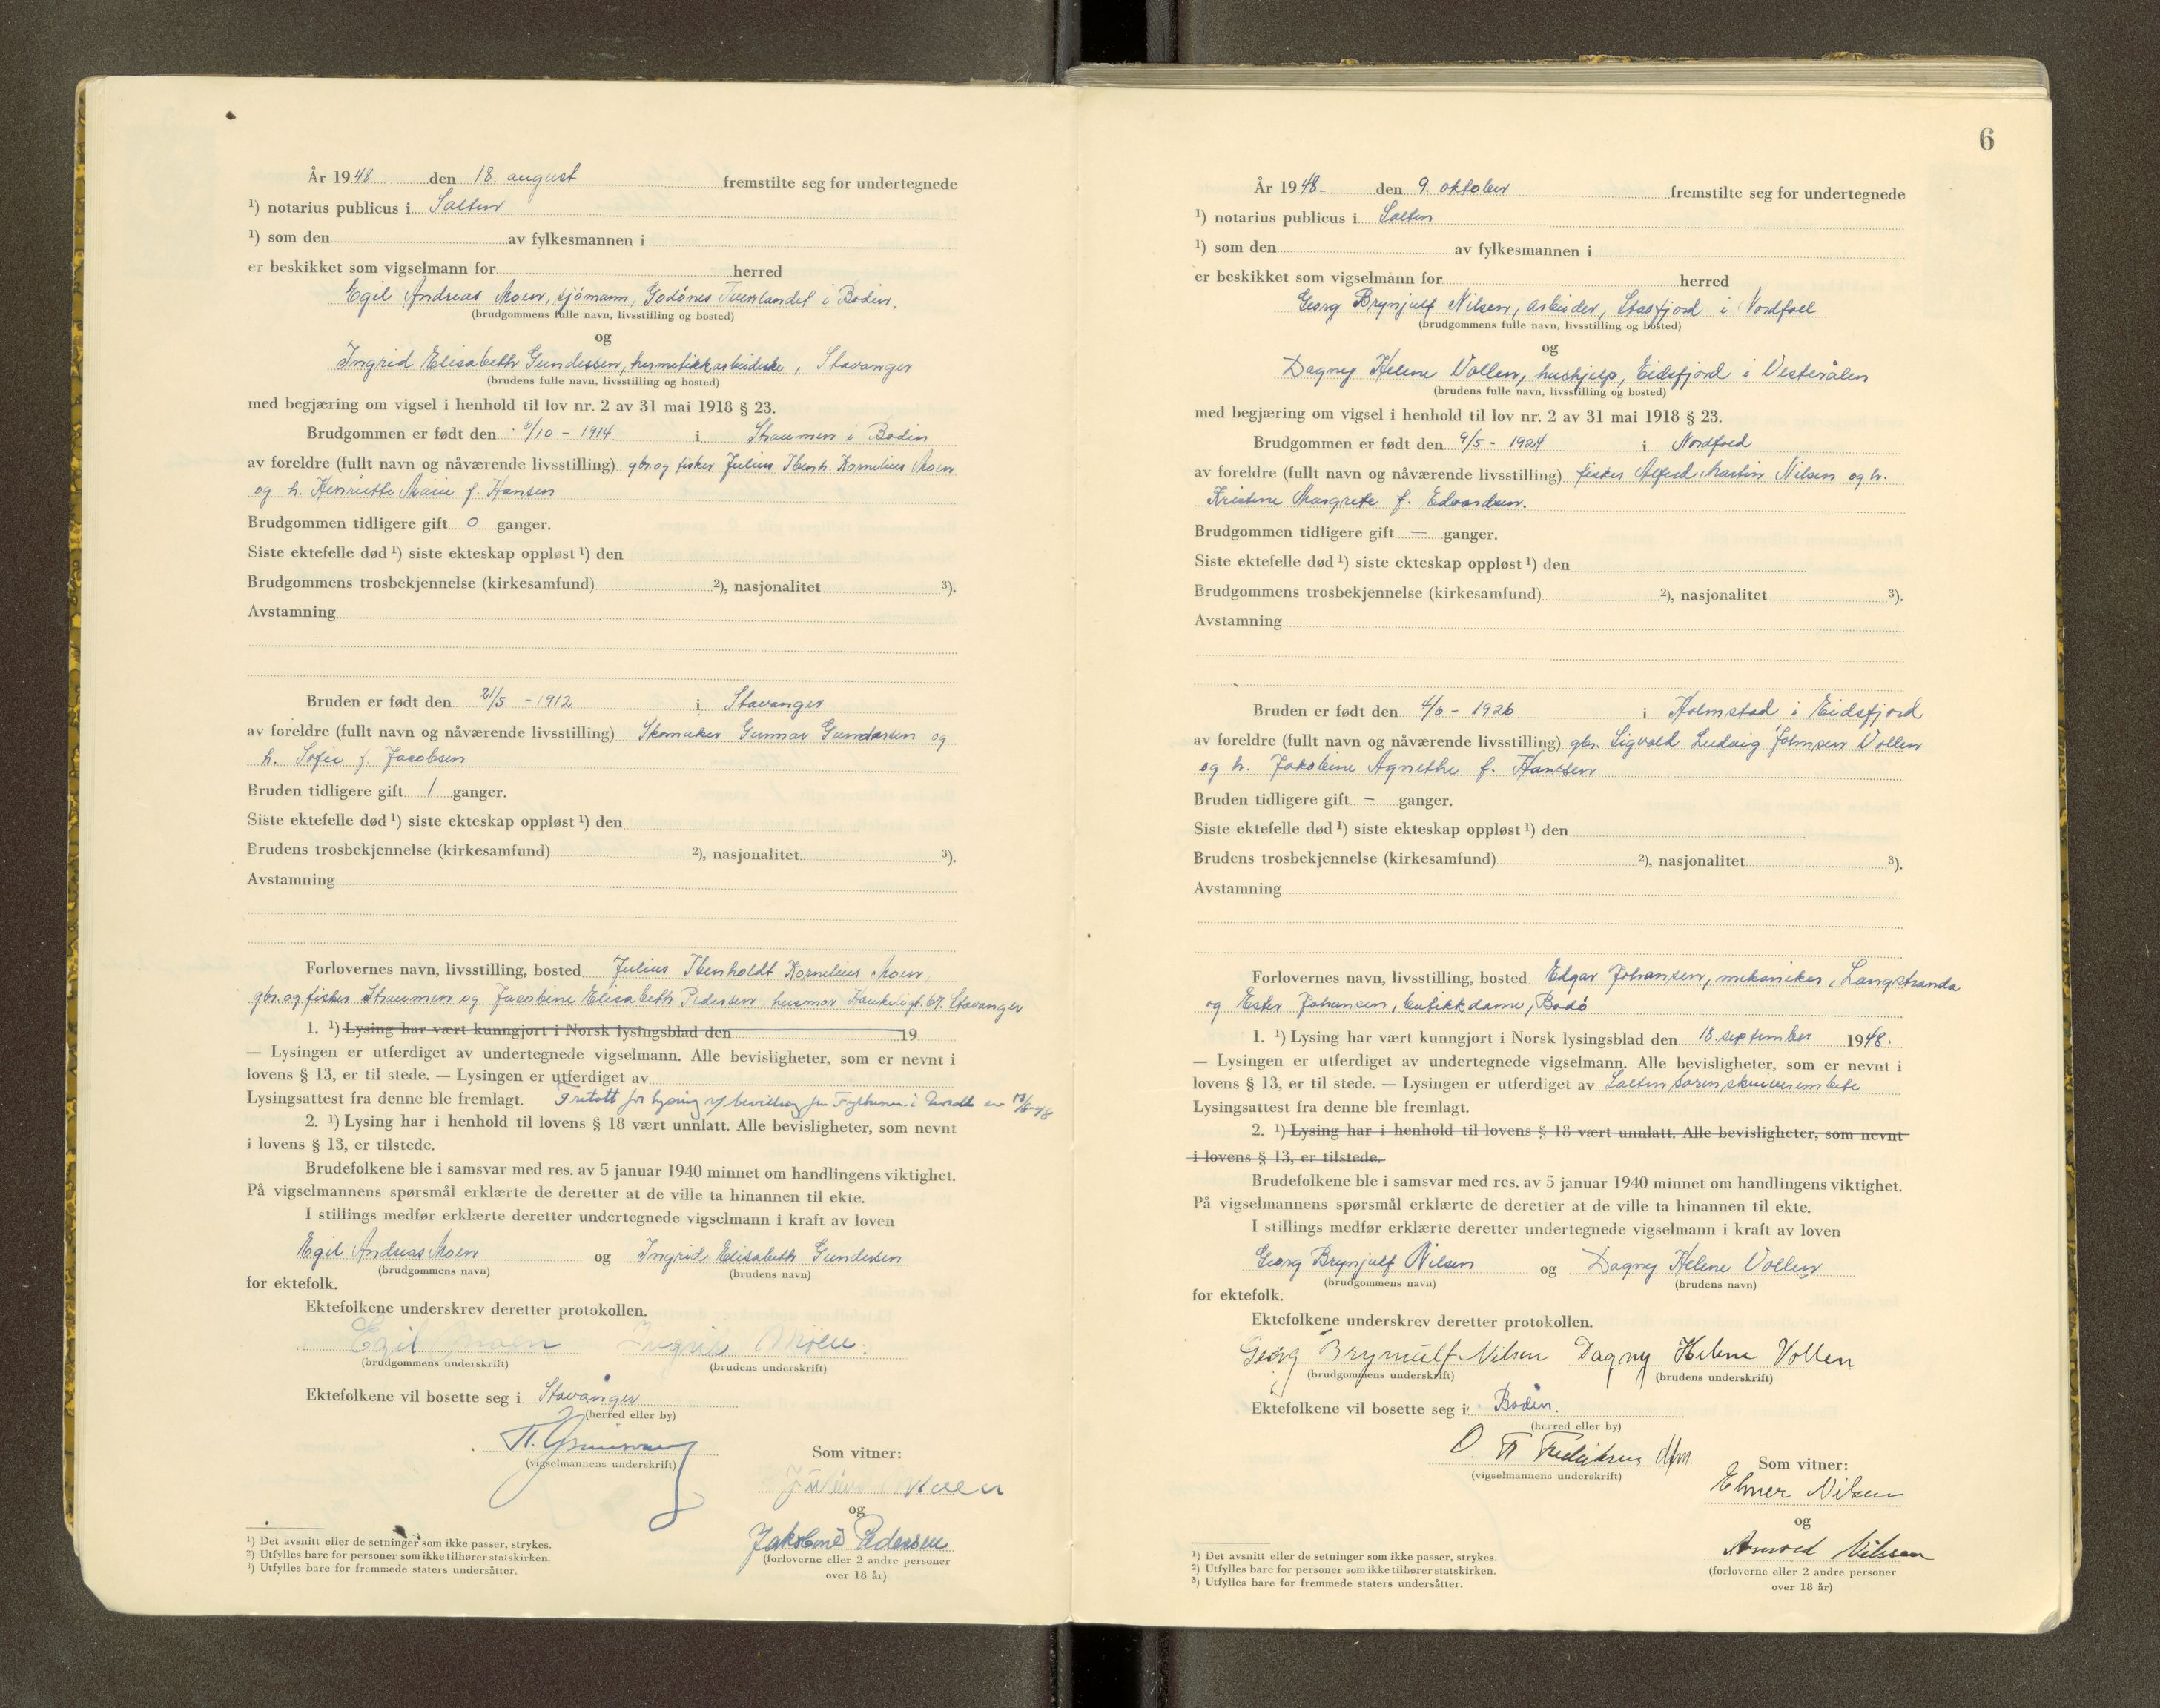 År 1948 den 18. august fremstilte seg for undertegnede
¹) notarius publicus i Salten
¹) som den av fylkesmannen i
er beskikket som vigselmann for herred
Egil Andreas Moen, sjömann, Godönes i Bodin.
(brudgommens fulle navn, livsstilling og bosted)
og
Ingrid Elisabeth Gundersen, hermetikkarbeiderske, Stavanger
(brudens fulle navn, livsstilling og bosted)
med begjæring om vigsel i henhold til lov nr. 2 av 31 mai 1918 § 23.
Brudgommen er født den /10 - 1914 i Straumen i Bodin
av foreldre (fullt navn og nåværende livsstilling) gbr. og fisker Julius Ibenh. Kornelius Moen
og h. Henriette Marie f. Hansen
Brudgommen tidligere gift 0 ganger.
Siste ektefelle død ¹) siste ekteskap oppløst ¹) den
Brudgommens trosbekjennelse (kirkesamfund) ²), nasjonalitet ³).
Avstamning
Bruden er født den 21/5 - 1912 i Stavanger
av foreldre (fullt navn og nåværende livsstilling) Skomaker Gunnar Gundersen og
h. Sofie f. Jacobsen
Bruden tidligere gift 1 ganger.
Siste ektefelle død ¹) siste ekteskap oppløst ¹) den
Brudens trosbekjennelse (kirkesamfund) ²), nasjonalitet ³).
Avstamning
Forlovernes navn, livsstilling, bosted Julius Ibenholdt Kornelius Moen,
gbr. og fisker Straumen og Jacobine Elisabeth Pedersen, husmor 67. Stavanger
1. ¹) Lysing har vært kunngjort i Norsk lysingsblad den 19
— Lysingen er utferdiget av undertegnede vigselmann. Alle bevisligheter, som er nevnt i
lovens § 13, er til stede. — Lysingen er utferdiget av
Lysingsattest fra denne ble fremlagt. Fritatt for lysing bevilling fra Fylkesm. i
2. ¹) Lysing har i henhold til lovens § 18 vært unnlatt. Alle bevisligheter, som nevnt
i lovens § 13, er tilstede.
Brudefolkene ble i samsvar med res. av 5 januar 1940 minnet om handlingens viktighet.
På vigselmannens spørsmål erklærte de deretter at de ville ta hinannen til ekte.
I stillings medfør erklærte deretter undertegnede vigselmann i kraft av loven
Egil Andreas Moen og Ingrid Elisabeth Gundersen
(brudgommens navn) (brudens navn)
for ektefolk.
Ektefolkene underskrev deretter protokollen.
Egil Moen Ingrid Moen.
(brudgommens underskrift) (brudens underskrift)
Ektefolkene vil bosette seg i Stavanger
(herred eller by)
(vigselmannens underskrift)
Som vitner:
Julius Moen
og
Jakobine Pedersen
(forloverne eller 2 andre personer
over 18 år)
¹) Det avsnitt eller de setninger som ikke passer, strykes.
²) Utfylles bare for personer som ikke tilhører statskirken.
¹) Utfylles bare for fremmede staters undersåtter.
6
År 1948. den 9. oktober fremstilte seg for undertegnede
¹) notarius publicus i Salten
¹) som den av fylkesmannen i
er beskikket som vigselmann for herred
Georg Brynjulf Nilsen, arbeider, i Nordfold
(brudgommens fulle navn, livsstilling og bosted)
og
Dagny Helene Vollen, hushjelp, Eidsfjord i Vesterålen
(brudens fulle navn, livsstilling og bosted)
med begjæring om vigsel i henhold til lov nr. 2 av 31 mai 1918 § 23.
Brudgommen er født den 9/5 - 1924 i Nordfold
av foreldre (fullt navn og nåværende livsstilling) fisker Alfred Martin Nilsen og h.
Kristine Margrete f. Edvardsen.
Brudgommen tidligere gift — ganger.
Siste ektefelle død ¹) siste ekteskap oppløst ¹) den
Brudgommens trosbekjennelse (kirkesamfund) ²), nasjonalitet ³).
Avstamning
Bruden er født den 4/6 - 1926 i Holmstad i Eidsfjord
av foreldre (fullt navn og nåværende livsstilling) gbr. Sigvald Ludvig Johnsen Vollen
og h. Jakobine Agnethe f. Hansen
Bruden tidligere gift - ganger.
Siste ektefelle død ¹) siste ekteskap oppløst ¹) den
Brudens trosbekjennelse (kirkesamfund) ²), nasjonalitet ³).
Avstamning
Forlovernes navn, livsstilling, bosted Edgar Johansen, mekaniker, Langstranda
og Ester Johansen, butikkdame, Bodö
1. ¹) Lysing har vært kunngjort i Norsk lysingsblad den 18. september 1948.
— Lysingen er utferdiget av undertegnede vigselmann. Alle bevisligheter, som er nevnt i
lovens § 13, er til stede. — Lysingen er utferdiget av Salten sorenskriverembete
Lysingsattest fra denne ble fremlagt.
2. ¹) Lysing har i henhold til lovens § 18 vært unnlatt. Alle bevisligheter, som nevnt
i lovens § 13, er tilstede.
Brudefolkene ble i samsvar med res. av 5 januar 1940 minnet om handlingens viktighet.
På vigselmannens spørsmål erklærte de deretter at de ville ta hinannen til ekte.
I stillings medfør erklærte deretter undertegnede vigselmann i kraft av loven
Georg Brynjulf Nilsen og Dagny Helene Vollen
(brudgommens navn) (brudens navn)
for ektefolk.
Ektefolkene underskrev deretter protokollen.
Georg Brynulf Nilsen Dagny Helene Vollen
(brudgommens underskrift) (brudens underskrift)
Ektefolkene vil bosette seg i Bodin.
(herred eller by)
O. Fredriksen dfm.
(vigselmannens underskrift)
Som vitner:
Elmer Nilsen
og
Arnold Nilssen
(forloverne eller 2 andre personer
over 18 år)
¹) Det avsnitt eller de setninger som ikke passer, strykes.
²) Utfylles bare for personer som ikke tilhører statskirken.
³) Utfylles bare for fremmede staters undersåtter.